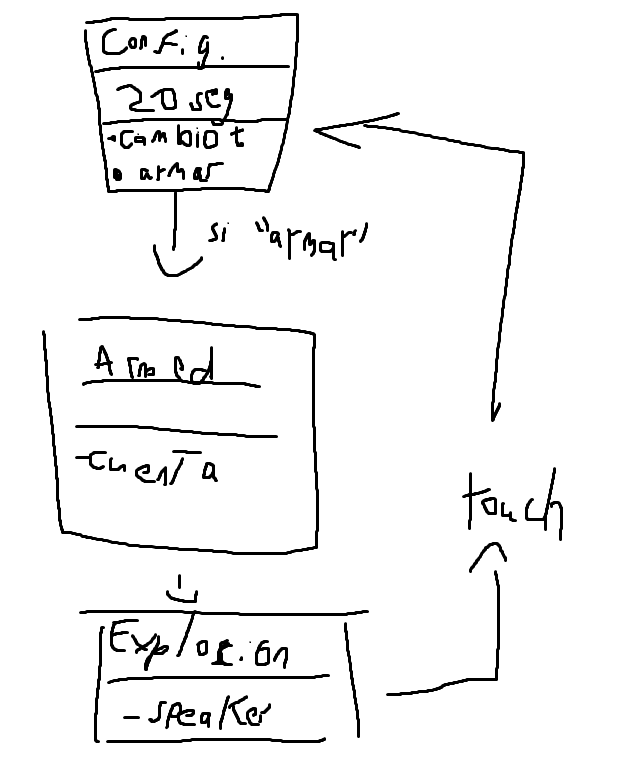 Config.
20 seg
-cambio t
• armar
si "armar"
Armed
-cuenTa
touch
Explosion
-speaker